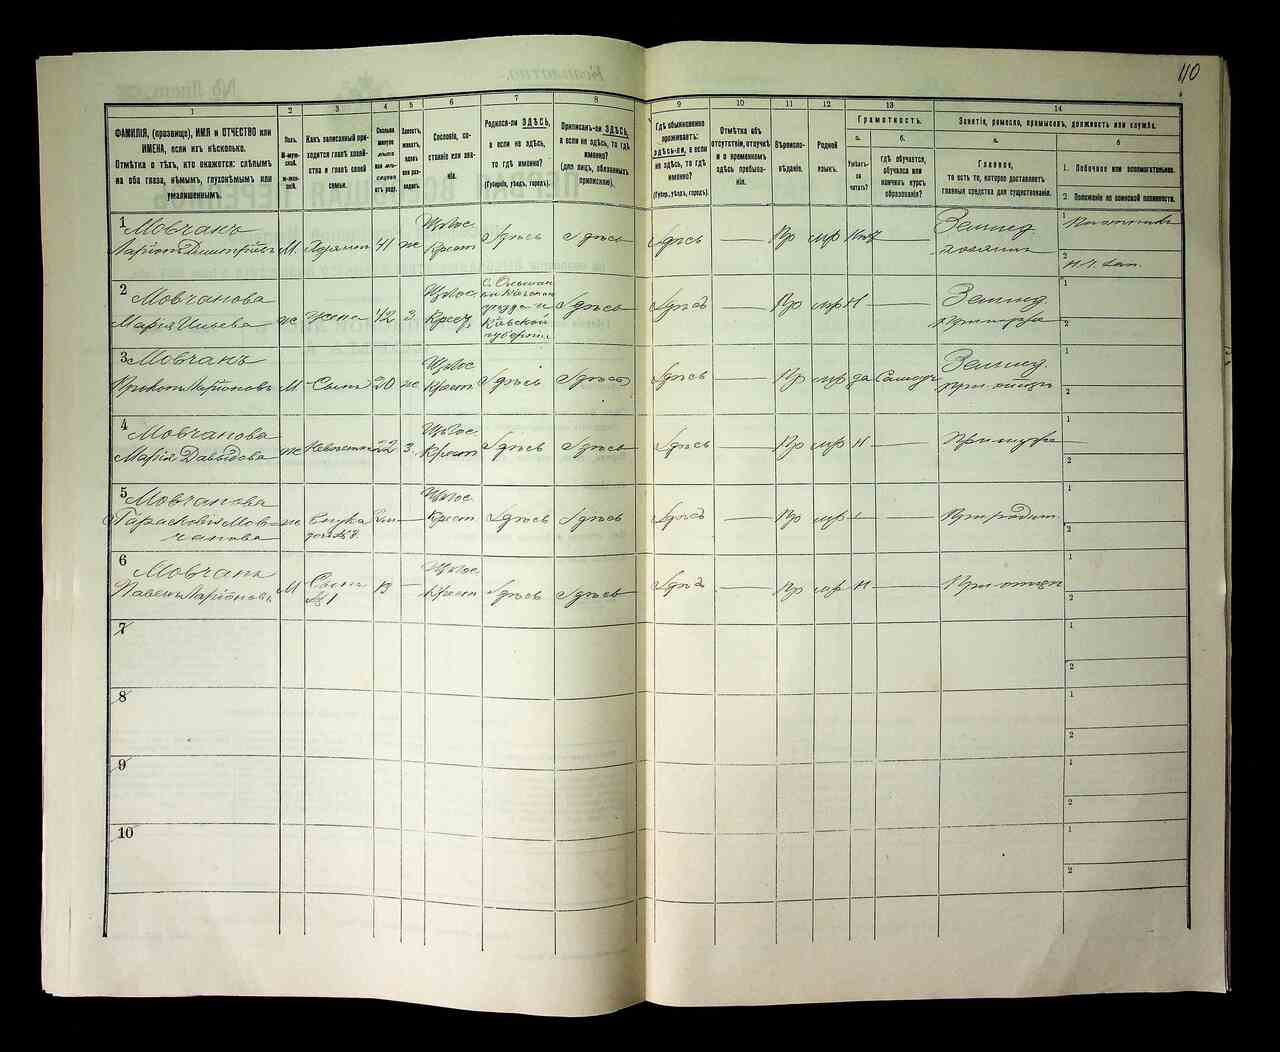 110
1
2
3
4
5
6
7
8
9
10
11
12
13
14
ФАМИЛІЯ, (прозвище), ИМЯ и ОТЧЕСТВО или
ИМЕНА, если ихъ нѣсколько.
Отмѣтка о тѣхъ, кто окажется: слѣпымъ
на оба глаза, нѣмымъ, глухонѣмымъ или
умалишеннымъ.
Полъ.
М-мужской.
Ж-женскій.
Какъ записанный при-
ходится главѣ хозяй-
ства и главѣ своей
семьи.
Сколько
минуло
лѣтъ
или мѣ-
сяцевъ
отъ роду.
Холостъ,
женатъ,
вдовъ
или раз-
веденъ.
Сословіе, со-
стояніе или зва-
ніе.
Родился-ли ЗДѢСЬ,
а если не здѣсь,
то гдѣ именно?
(Губернія, уѣздъ, городъ).
Приписанъ-ли ЗДѢСЬ,
а если не здѣсь, то гдѣ
именно?
(для лицъ, обязанныхъ
припискою).
Гдѣ обыкновенно
проживаетъ:
здѣсь-ли, а если
не здѣсь, то гдѣ
именно?
(Губер., уѣздъ, городъ).
Отмѣтка объ
отсутствіи, отлучкѣ
и о временномъ
здѣсь пребыва-
ніи.
Вѣроиспо-
вѣданіе.
Родной
языкъ.
Грамотность.
а.
Умѣетъ-
ли
читать?
б.
гдѣ обучается,
обучался или
кончилъ курсъ
образованія?
Занятіе, ремесло, промыселъ, должность или служба.
а.
Главное,
то есть то, которое доставляетъ
главныя средства для существованія.
б
1. Побочное или вспомогательное.
2. Положеніе по воинской повинности.
1 Мовчанъ
Ларіонъ Дмитріевъ М. Хозяинъ 41 ж Крест Здѣсь Здѣсь Здѣсь — Пр мр — Землед. хозяинъ
2 Мовчанова
Марія м ж Жена 42 З. Крест. Здѣсь Здѣсь — Пр мр н — Землед. при мужѣ
уѣзда
Кіевской
губерніи
3 Мовчанъ
Ларіоновъ М. Сынъ 20 ж Крест Здѣсь Здѣсь Здѣсь — Пр мр да Землед. при отцѣ
4 Мовчанова
Марія Давыдова ж Невѣстка 22 З. Крест Здѣсь Здѣсь Здѣсь — Пр мр н — При мужѣ
5 Мовчанова
Мов-
чанова ж Внука — Крест Здѣсь Здѣсь Здѣсь — Пр мр — При родит.
6 Мовчанъ
Ларіоновъ М Сынъ 13 — Крест Здѣсь Здѣсь Здѣсь — Пр мр н — При отцѣ
№1
7
8
9
10